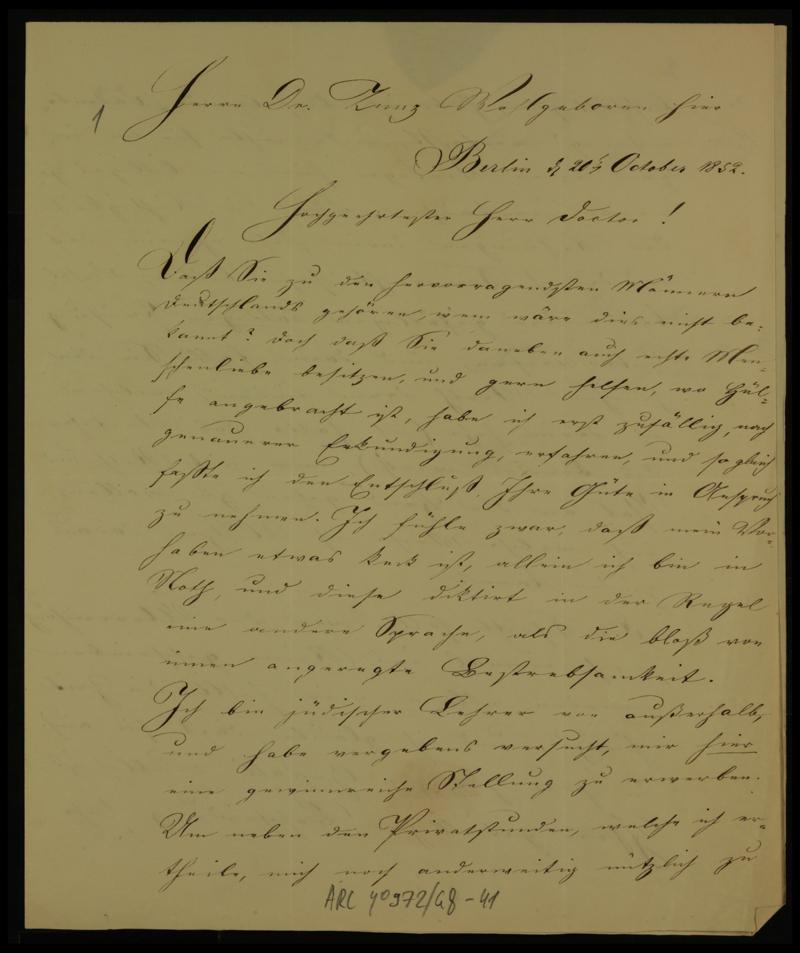 1
Herrn Dr. Zunz Wohlgeboren hier
Berlin d 20t October 1852.
Hochgeehrtester Herr Doctor!
Daß Sie zu den hervorragendsten Männern
Deutschlands gehören, wem wäre dies nicht be-
kannt? Doch daß Sie daneben auch echte Men-
schenliebe besitzen, und gern helfen, wo Hül-
fe angebracht ist, habe ich erst zufällig, nach
genauerer Erkundigung, erfahren, und sogleich
faßte ich den Entschluß, Ihre Güte in Anspruch
zu nehmen. Ich fühle zwar, daß mein Vor-
haben etwas keck ist, allein ich bin in
Noth, und diese diktirt in der Regel
eine andere Sprache, als die bloß von
innen angeregte Bestrebsamkeit.
Ich bin jüdischer Lehrer von außerhalb,
und habe vergebens versucht, mir hier
eine gewinnreiche Stellung zu erwerben.
Um neben den Privatstunden, welche ich er-
theile, mich noch anderweitig nützlich zu
ARC 4°972/G8-41